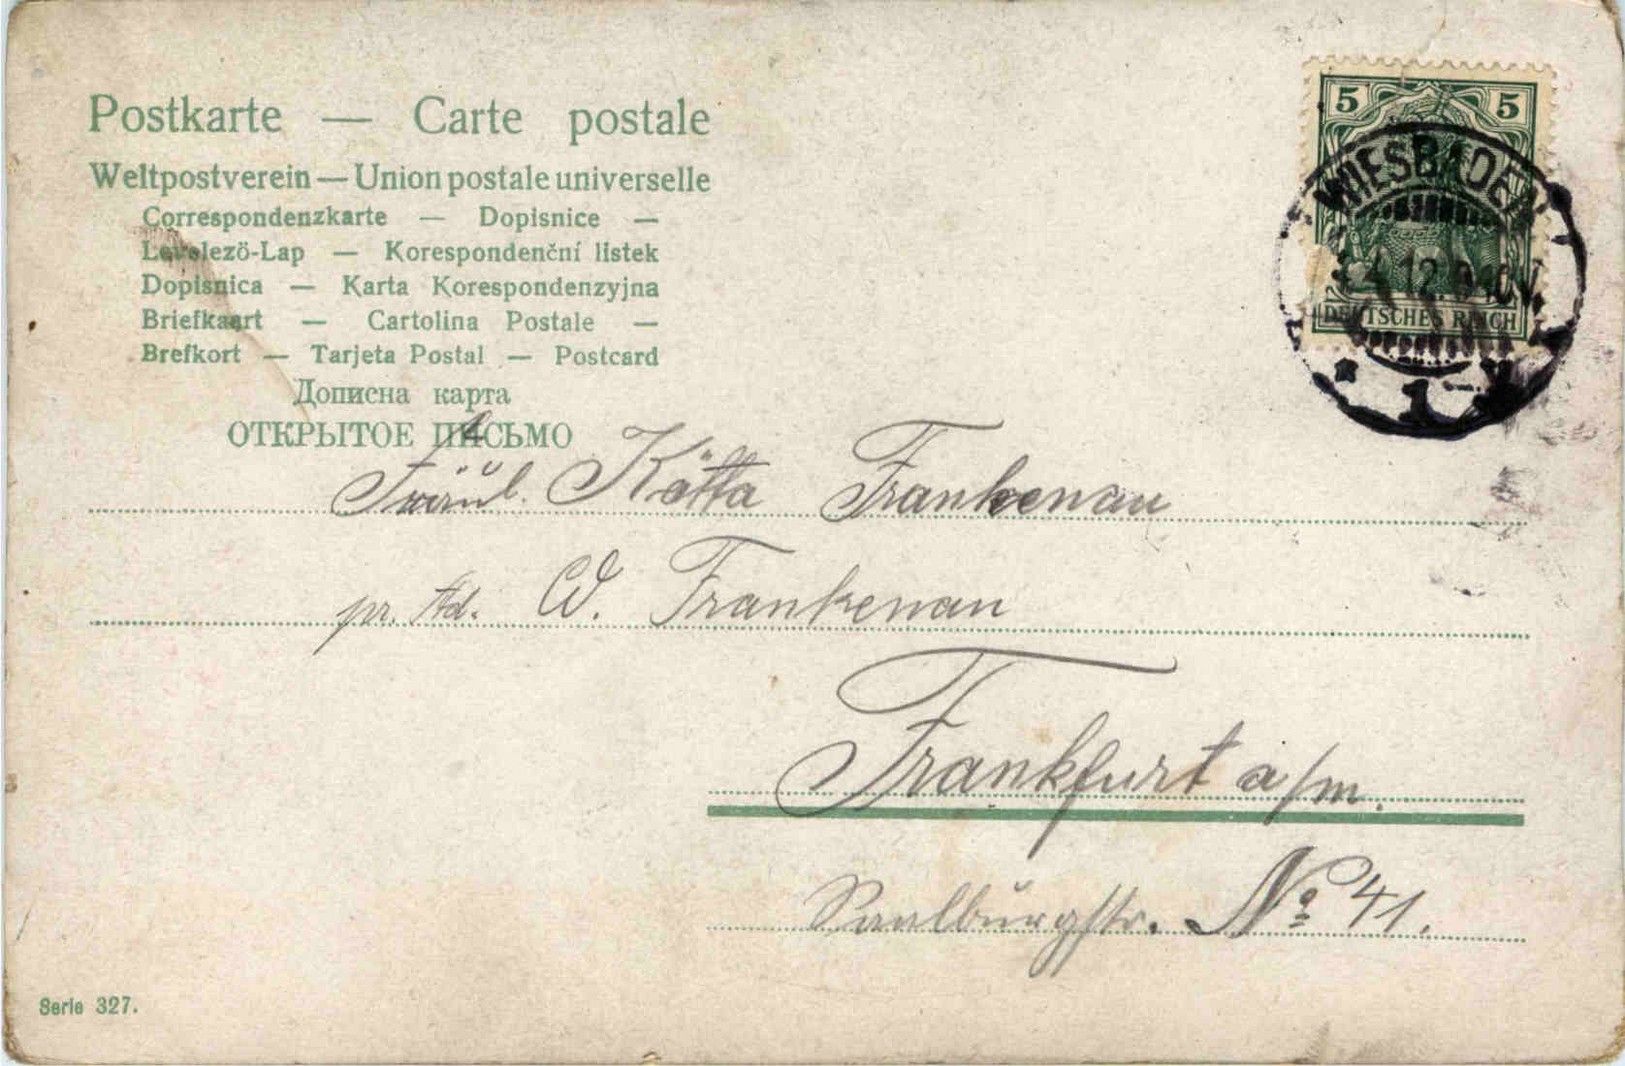 Postkarte — Carte postale
Weltpostverein — Union postale universelle
Correspondenzkarte — Dopisnice —
Levelező-Lap — Korespondenční listek
Dopisnica — Karta Korespondenzyjna
Briefkaart — Cartolina Postale —
Brefkort — Tarjeta Postal — Postcard
Дописна карта
ОТКРЫТОЕ ПИСЬМО
5 5
DEUTSCHES REICH
WIESBADEN
* 1
Fräul. Kätta Frankenau
pr. Ad. W. Frankenau
Frankfurt a/m.
Saalburgstr. No 41.
Serie 327.